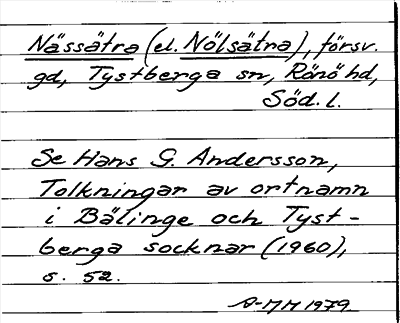 Nässätra (el. Nölsätra), försv.
gd, Tystberga sn, Rönö hd,
Söd. l.
Se Hans G. Andersson,
Tolkningar av ortnamn
i Bälinge och Tyst-
berga socknar (1960),
s. 52.
A-MM 1979